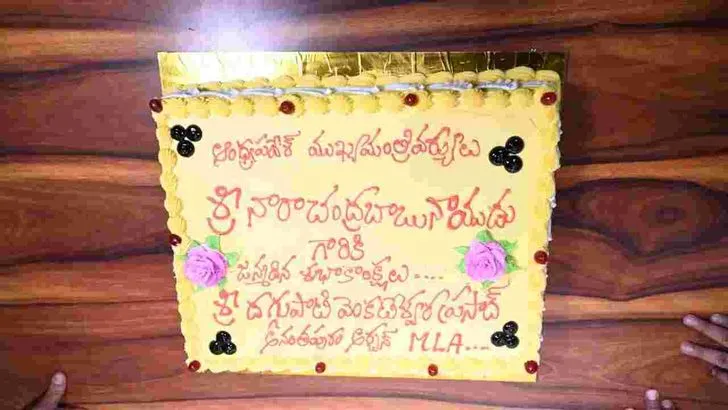 ఆంధ్రప్రదేశ్ ముఖ్యమంత్రివర్యులు
శ్రీ నారాచంద్రబాబునాయుడు
గారికి
జన్మదిన శుభాకాంక్షలు ....
శ్రీ దగుపాటి వెంకటేశ్వర ప్రసాద్
అనంతపురం అర్బన్ M.L.A....